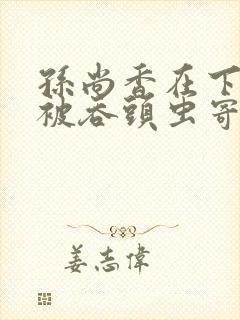 孫尚香在下
被吞頭虫寄
姜志偉